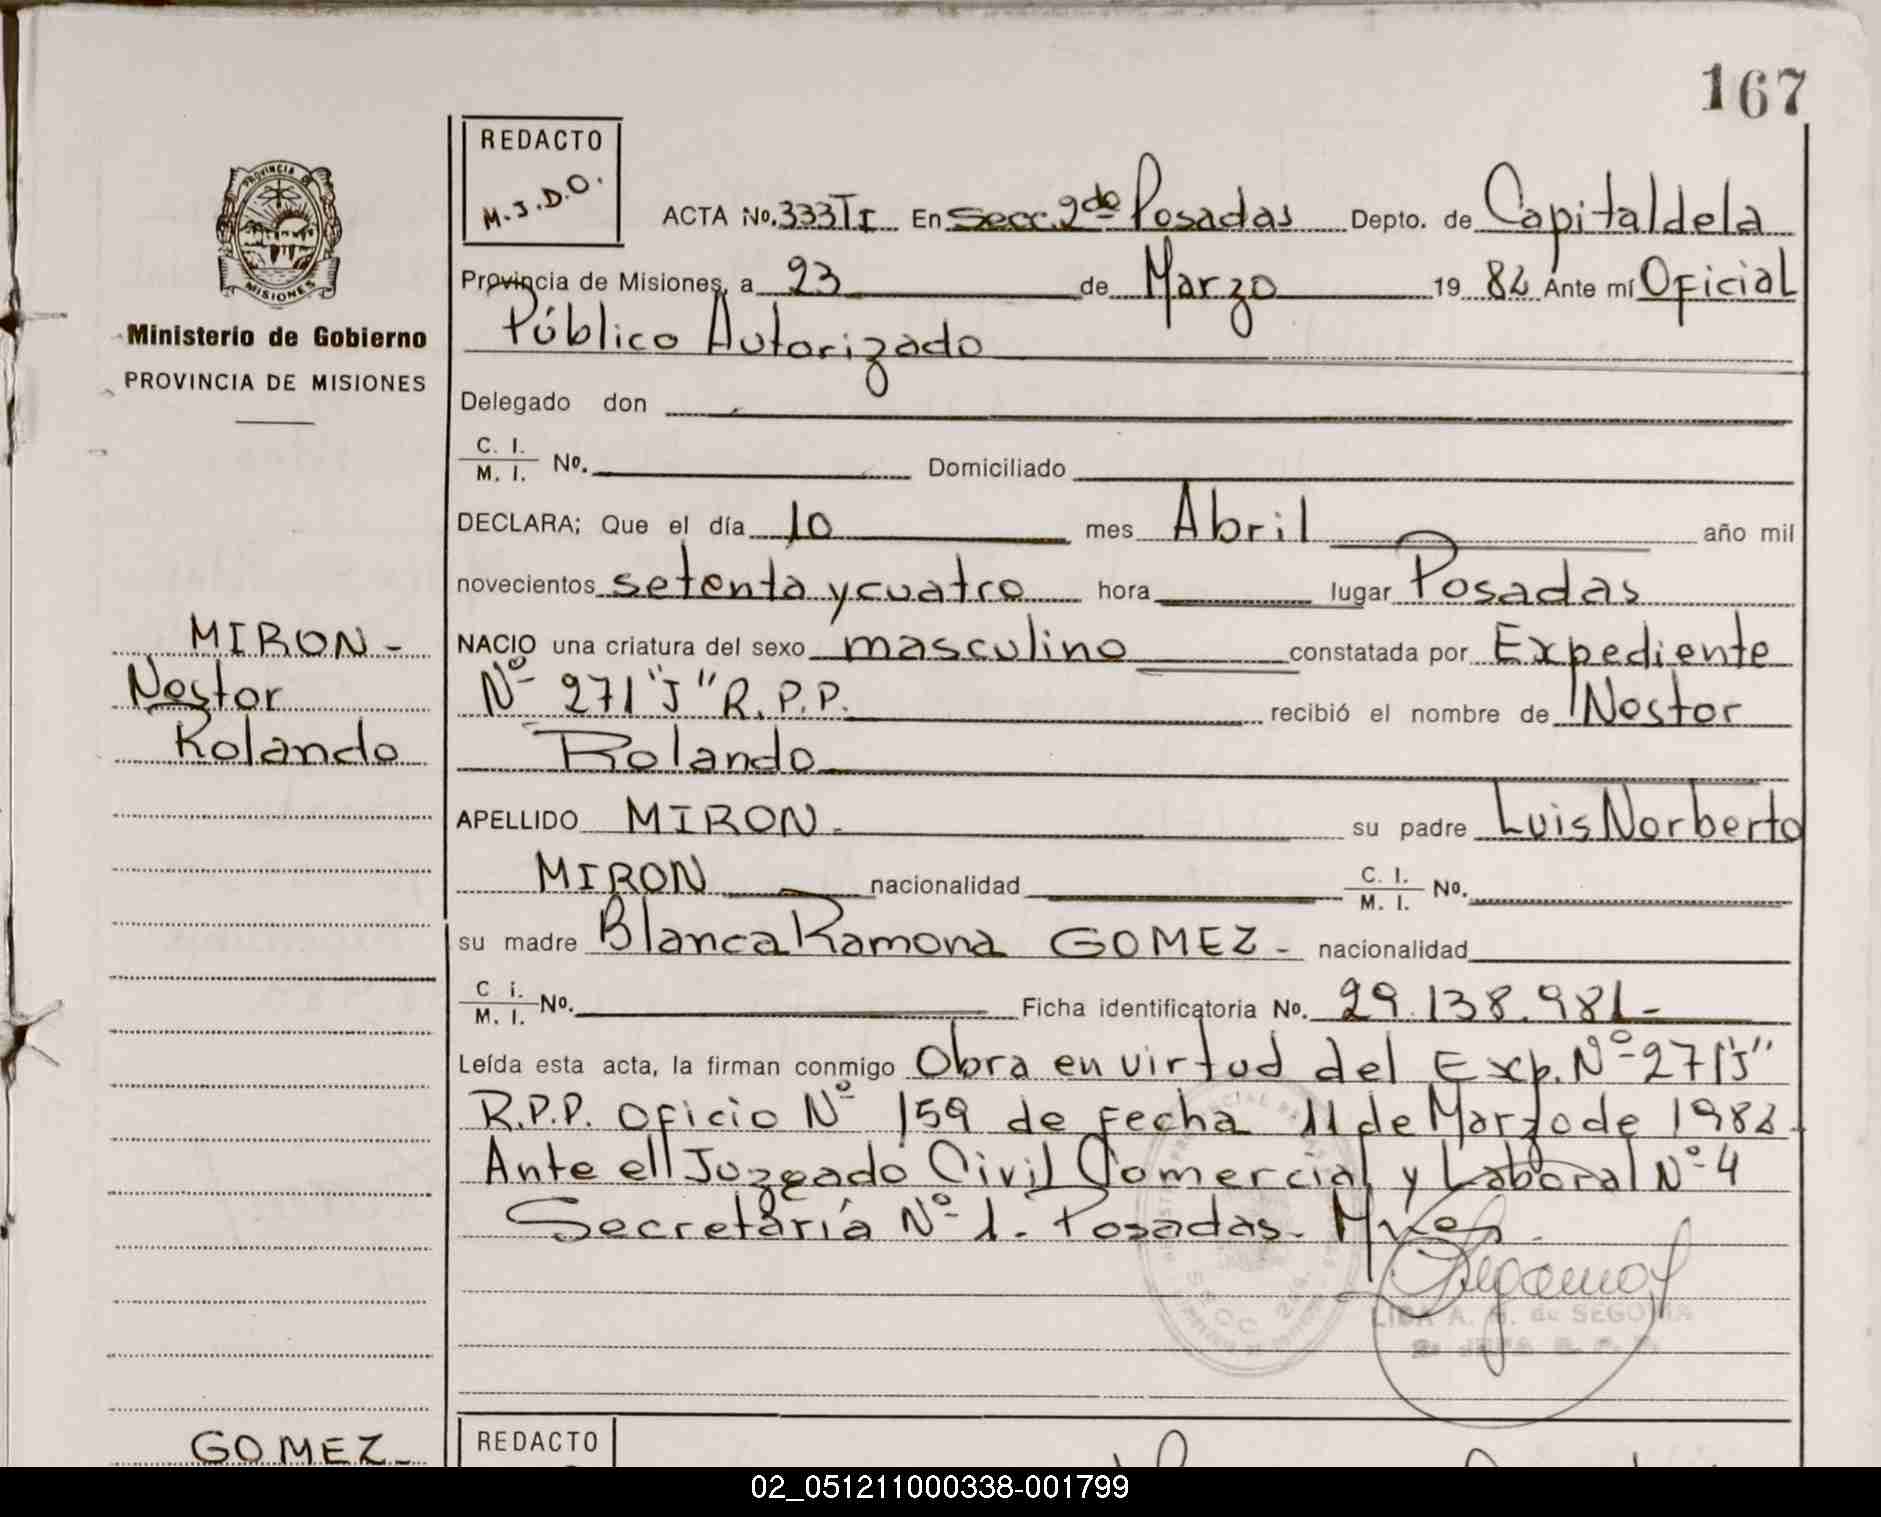 167
REDACTO
M.J.D.O.
PROVINCIA DE
MISIONES
Ministerio de Gobierno
PROVINCIA DE MISIONES
ACTA No. 333 TI En Secc. 2do Posadas Depto. de Capital de la
Provincia de Misiones, a 23 de Marzo 1982 Ante mí Oficial
Público Autorizado
Delegado don
C. I.
M. I. No. Domiciliado
DECLARA; Que el día 10 mes Abril año mil
novecientos setenta y cuatro hora lugar Posadas
MIRON-
Nestor
Rolando
NACIO una criatura del sexo masculino constatada por Expediente
Nº 271 "J" R.P.P. recibió el nombre de Nestor
Rolando
APELLIDO MIRON- su padre Luis Norberto
MIRON nacionalidad C. I. M. I. No.
su madre Blanca Ramona GOMEZ- nacionalidad
C i. M. I. No. Ficha identificatoria No. 29.138.981-
Leída esta acta, la firman conmigo Obra en virtud del Exp. Nº 271 "J"
R.P.P. Oficio Nº 159 de Fecha 11 de Marzo de 1982-
Ante el Juzgado Civil Comercial y Laboral Nº 4
Secretaría Nº 1. Posadas-
SECC. 2da.
LIDA A. de SEGOVIA
GOMEZ-
REDACTO
02_051211000338-001799